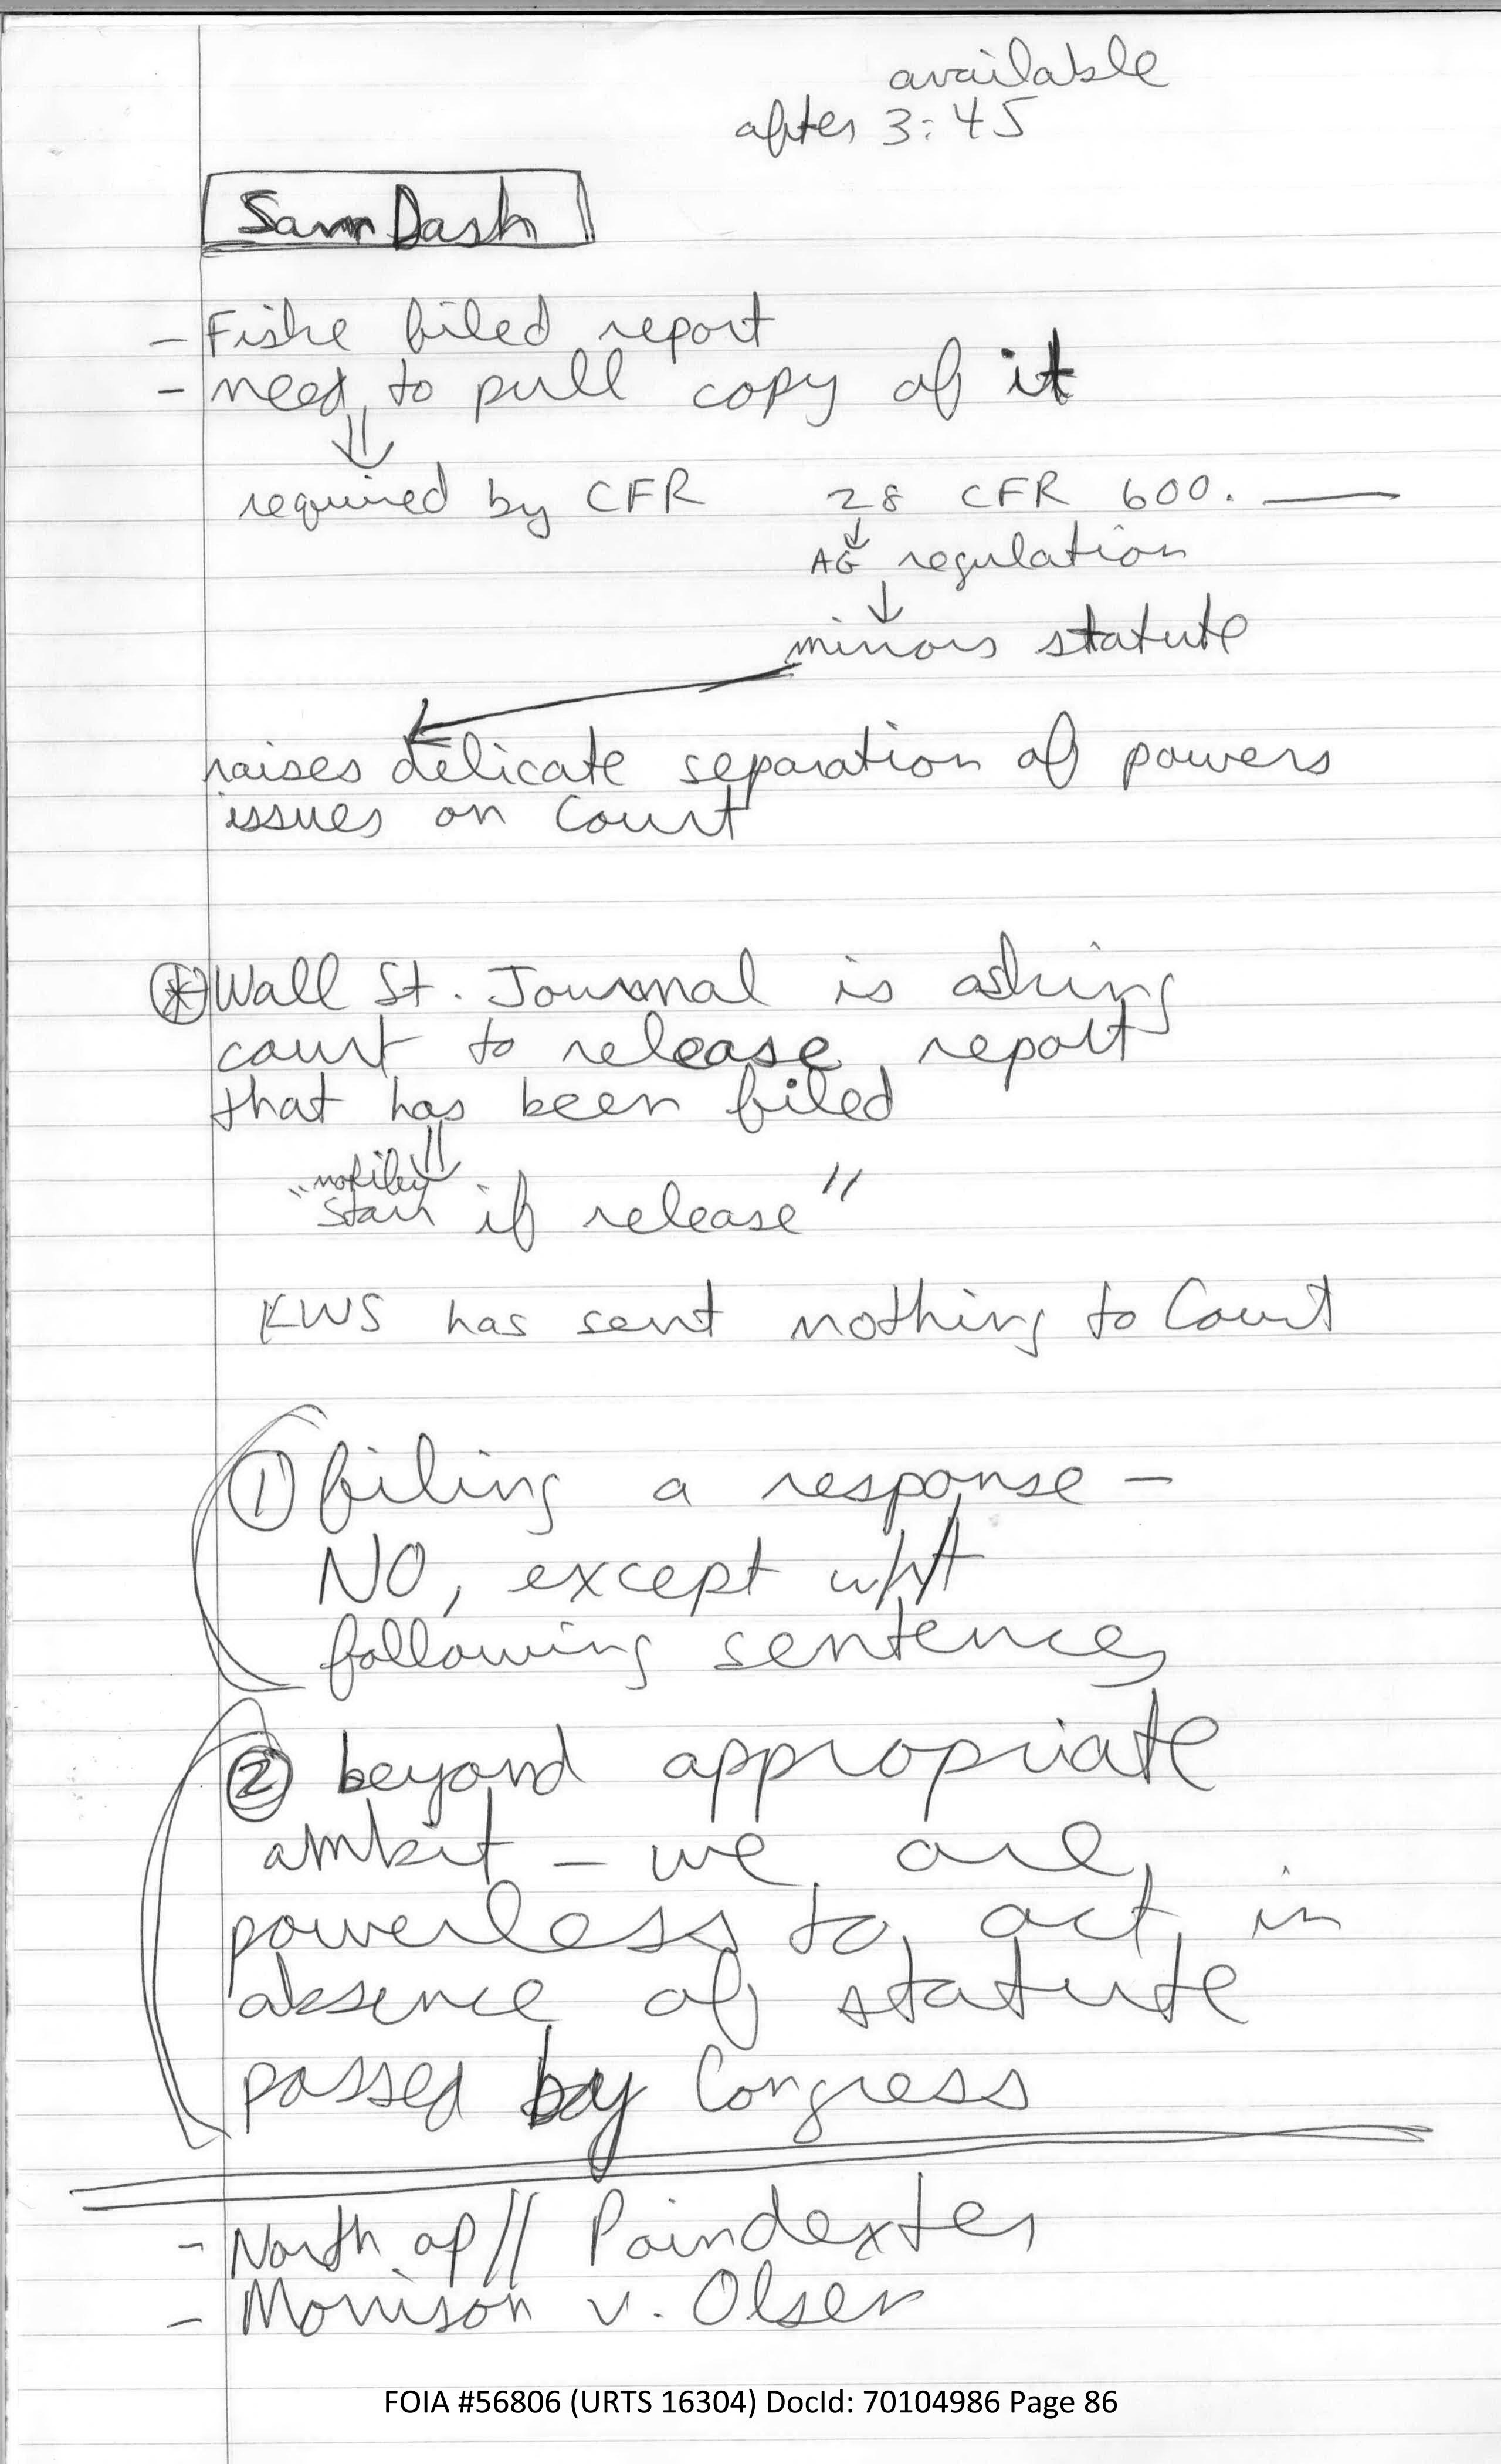 available
after 3:45
Sam Dash
- Fiske filed report
- need to pull copy of it
required by CFR 28 CFR 600. ___
AG regulation
mirrors statute
raises delicate separation of powers
issues on Court
* Wall St. Journal is asking
court to release report
that has been filed
"notify
Starr if release"
KWS has sent nothing to Court
① filing a response -
NO, except w/r/t
following sentence
② beyond appropriate
ambit - we are
powerless to act in
absence of statute
passed by Congress
- North op // Poindexter
- Morrison v. Olson
FOIA #56806 (URTS 16304) DocId: 70104986 Page 86